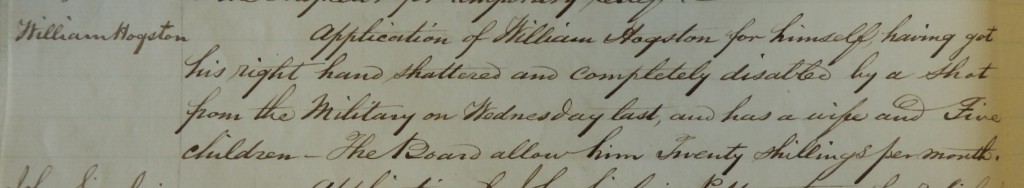 the Inspector for temporary relief
William Hogston
Application of William Hogston for himself, having got
his right hand shattered and completely disabled by a shot
from the Military on Wednesday last, and has a wife and Five
children – The Board allow him Twenty shillings per month.
Application of John